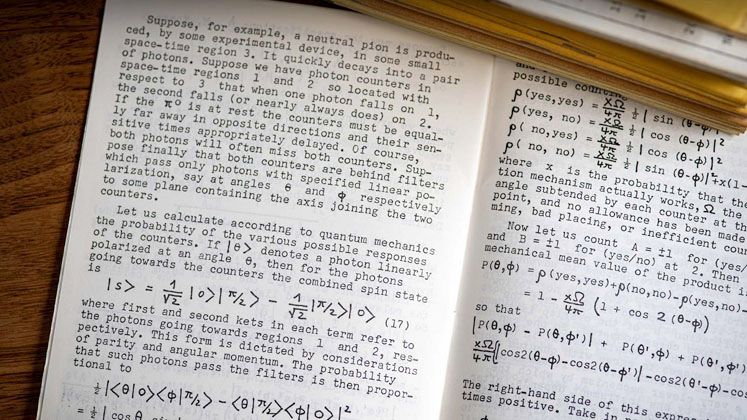 Suppose, for example, a neutral pion is produ-
ced, by some experimental device, in some small
space-time region 3. It quickly decays into a pair
of photons. Suppose we have photon counters in
space-time regions 1 and 2 so located with
respect to 3 that when one photon falls on 1,
the second falls (or nearly always does) on 2.
If the π⁰ is at rest the counters must be equal-
ly far away in opposite directions and their sen-
sitive times appropriately delayed. Of course,
both photons will often miss both counters. Sup-
pose finally that both counters are behind filters
which pass only photons with specified linear po-
larization, say at angles θ and φ respectively
to some plane containing the axis joining the two
counters.
Let us calculate according to quantum mechanics
the probability of the various possible responses
of the counters. If |θ> denotes a photon linearly
polarized at an angle θ, then for the photons
going towards the counters the combined spin state
is
|s> = 1/√2 |0>|π/2> - 1/√2 |π/2>|0> (17)
where first and second kets in each term refer to
the photons going towards regions 1 and 2, res-
pectively. This form is dictated by considerations
of parity and angular momentum. The probability
that such photons pass the filters is then propor-
tional to
½|<θ|0><φ|π/2> - <θ|π/2><φ|0>|²
= ½| cos θ sin
possible
ρ(yes,yes) = XΩ/4π ½| sin (θ-φ)|²
ρ(yes, no) = XΩ/4π ½| cos (θ-φ)|²
ρ( no,yes) = XΩ/4π ½| cos (θ-φ)|²
ρ( no, no) = XΩ/4π ½| sin (θ-φ)|²+x(1-
where x is the probability that the
tion mechanism actually works, Ω the
angle subtended by each counter at the
point, and no allowance has been made
ming, bad placing, or inefficient coun
Now let us count A = ±1 for (yes/
and B = ±1 for (yes/no) at 2. Then
mechanical mean value of the product i
P(θ,φ) = ρ(yes,yes)+ρ(no,no)-ρ(yes,no)-
= 1 - XΩ/4π (1 + cos 2 (θ-φ)
so that
|P(θ,φ) - P(θ,φ')| + P(θ',φ) + P(θ',φ'
XΩ/4π{|cos2(θ-φ)-cos2(θ-φ')|-cos2(θ'-φ)-
The right-hand side of this expre
times positive. Take in